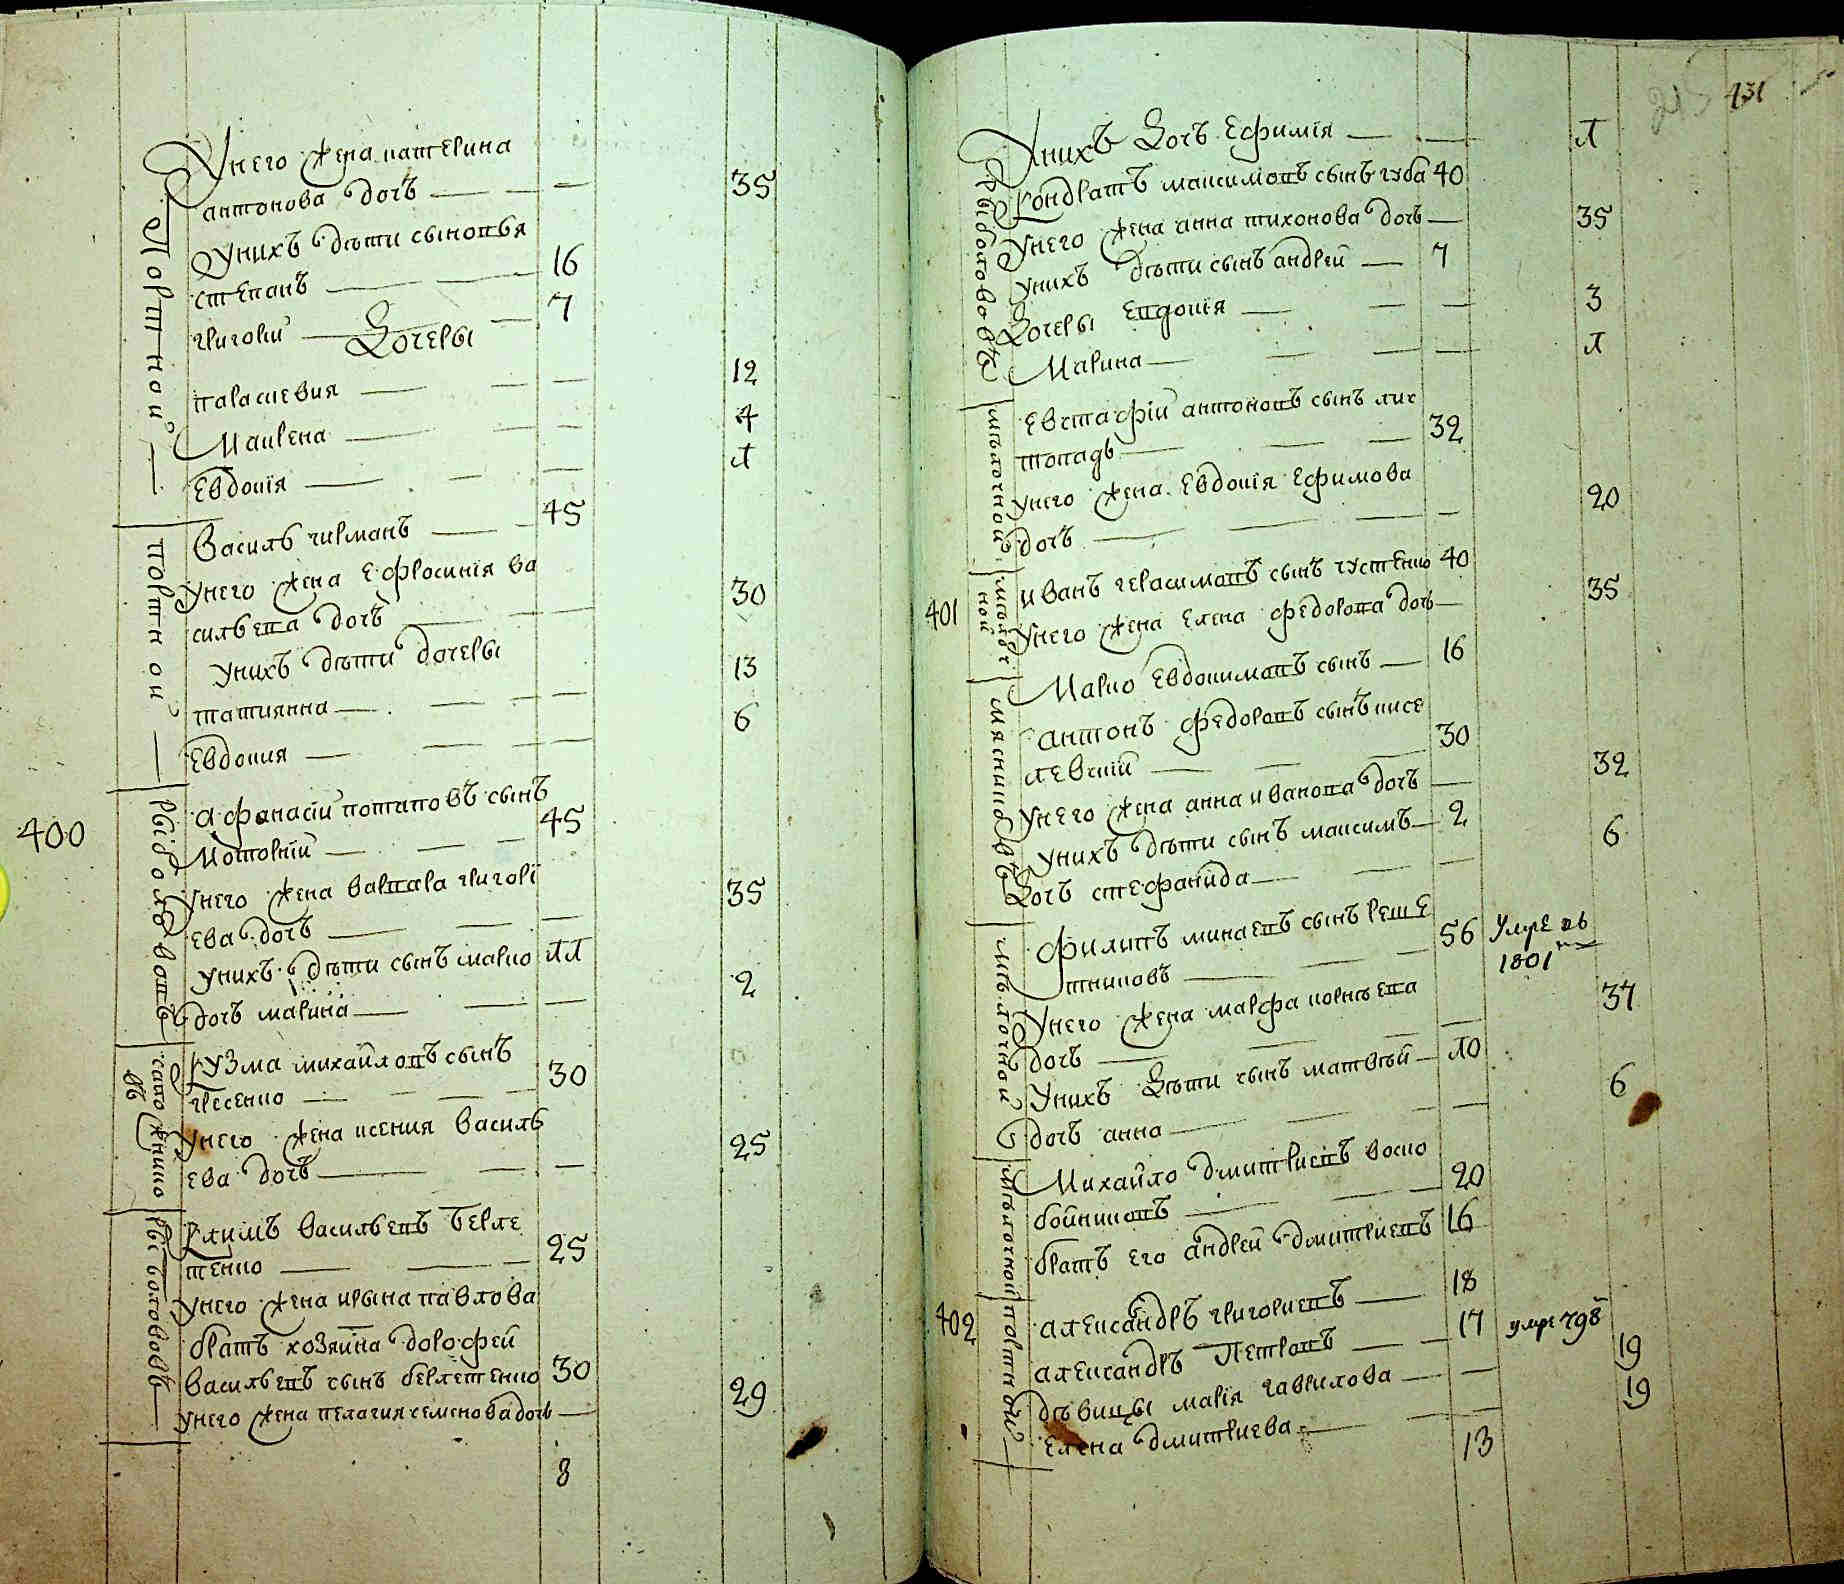 Портной
Унего жена катерина
антонова дочъ 35
Унихъ дѣти сыновья
степанъ 16
григорий 7
дочеры
параскевия 12
Макрена 4
Евдокія 1
портной
Василь чирманъ 45
Унего жена Ефросинія ва
сильева дочъ 30
Унихъ дѣти дочеры
татиянна 13
Евдокия 6
400
рыболововъ
афанасіи потаповъ сынъ
45
Унего жена варвара григорі
ева дочъ 35
Унихъ дѣти сынъ марко 11
дочъ марина 2
сапожнико
въ
кузма михайловъ сынъ
гресенко 30
Унего жена ксения василь
ева дочъ 25
рыболововъ
климъ васильевъ берле
тенко 25
Унего жена ирына павлова
братъ хозяина дорофей
васильевъ сынъ берлетенко 30
Унего жена пелагия семенова дочь 29
8
431
рыболововъ
Унихъ дочъ Ефимія 1
кондратъ максимовъ сынъ губа 40
Унего жена анна тихонова дочъ 35
Унихъ дѣти сынъ андрей 7
дочеры Евдокія 3
Марина 1
мѣлочной
Евстафій антоновъ сынъ лис
топадъ 32
Унего жена Евдокія Ефимова
дочъ 20
401
мѣлоч
ной
иванъ герасимовъ сынъ густенко 40
Унего жена Елена федорова дочь 35
Марко Евдокимовъ сынъ 16
мясниковъ
антонъ федоровъ сынъ кисе
левский 30
Унего жена анна иванова дочъ 32
Унихъ дѣти сынъ максимъ 2
дочъ стефанида 6
мѣлочной
филипъ минаевъ сынъ реше
тниковъ 56 умре въ
1801
Унего жена марфа корнѣева
дочъ 37
Унихъ дѣти сынъ матвѣй 10
дочъ анна 6
мѣлочной
Михайло дмитриевъ воско
бойниковъ 20
братъ его андрей дмитриевъ 16
402
портной
александръ григориевъ 18
александръ Петровъ 17 умре 798
дѣвицы марія гаврилова 19
Елена дмитриева 19
13